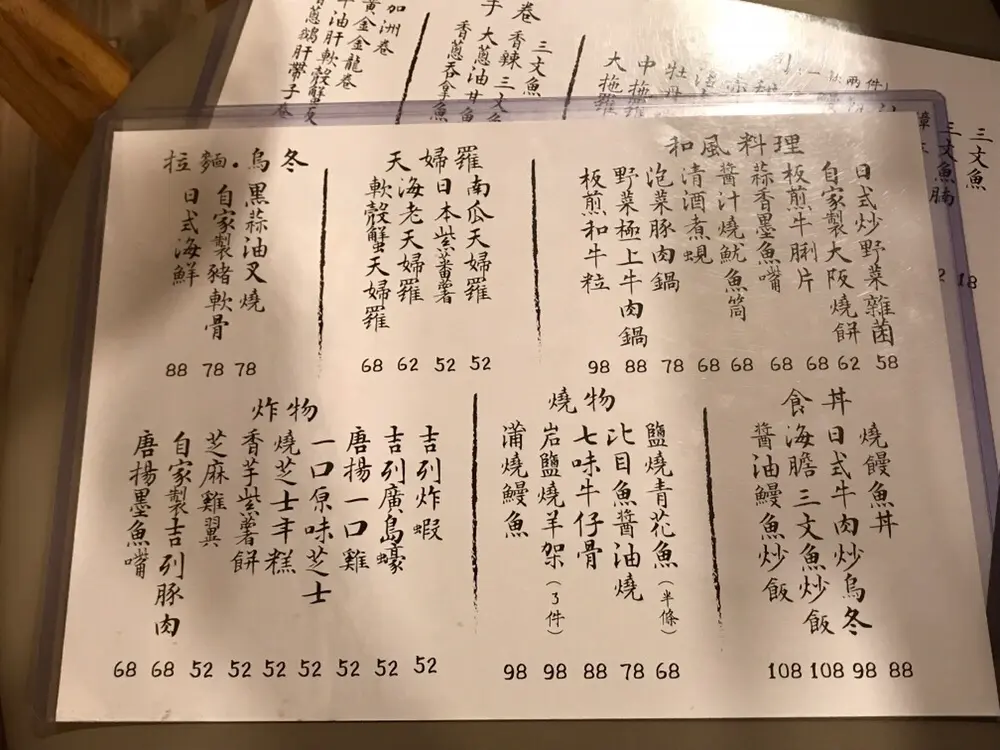 和風料理
日式炒野菜雜菌 58
自家製大阪燒餅 62
板煎牛脷片 68
蒜香墨魚嘴 68
醬汁燒魷魚筒 68
清酒煮蜆 68
泡菜豚肉鍋 78
野菜極上牛肉鍋 88
板煎和牛粒 98
天婦羅
南瓜天婦羅 52
日本紫蕃薯 52
海老天婦羅 62
軟殼蟹天婦羅 68
拉麵.烏冬
黑蒜油叉燒 78
自家製豬軟骨 78
日式海鮮 88
食丼
燒饅魚丼 88
日式牛肉炒烏冬 98
海膽三文魚炒飯 108
醬油鰻魚炒飯 108
燒物
鹽燒青花魚(半條) 68
比目魚醬油燒 78
七味牛仔骨 88
岩鹽燒羊架(3件) 98
蒲燒鰻魚 98
炸物
吉列炸蝦 52
吉列廣島蠔 52
唐揚一口雞 52
一口原味芝士 52
燒芝士年糕 52
香芋紫薯餅 52
芝麻雞翼 52
自家製吉列豚肉 68
唐揚墨魚嘴 68
三文魚
三文魚腩
18
手卷
三文魚
香辣三文魚
大蔥油甘魚
香蔥吞拿魚
加洲卷
黃金金龍卷
牛油肝軟殼蟹
香蔥鵝肝帶子卷